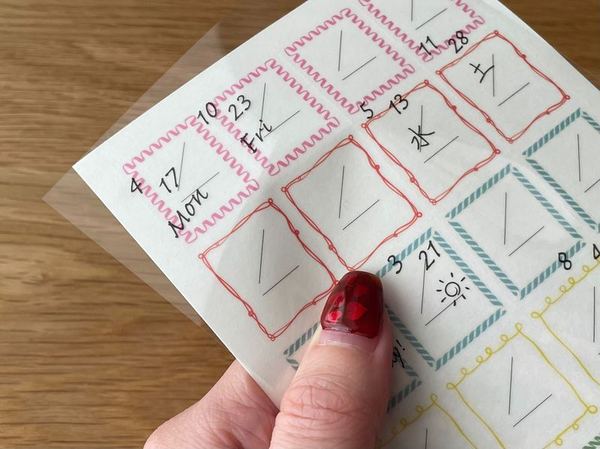 4 17
Mon
10 23
Fri
5 13
水
11 28
土
3 21
8 4